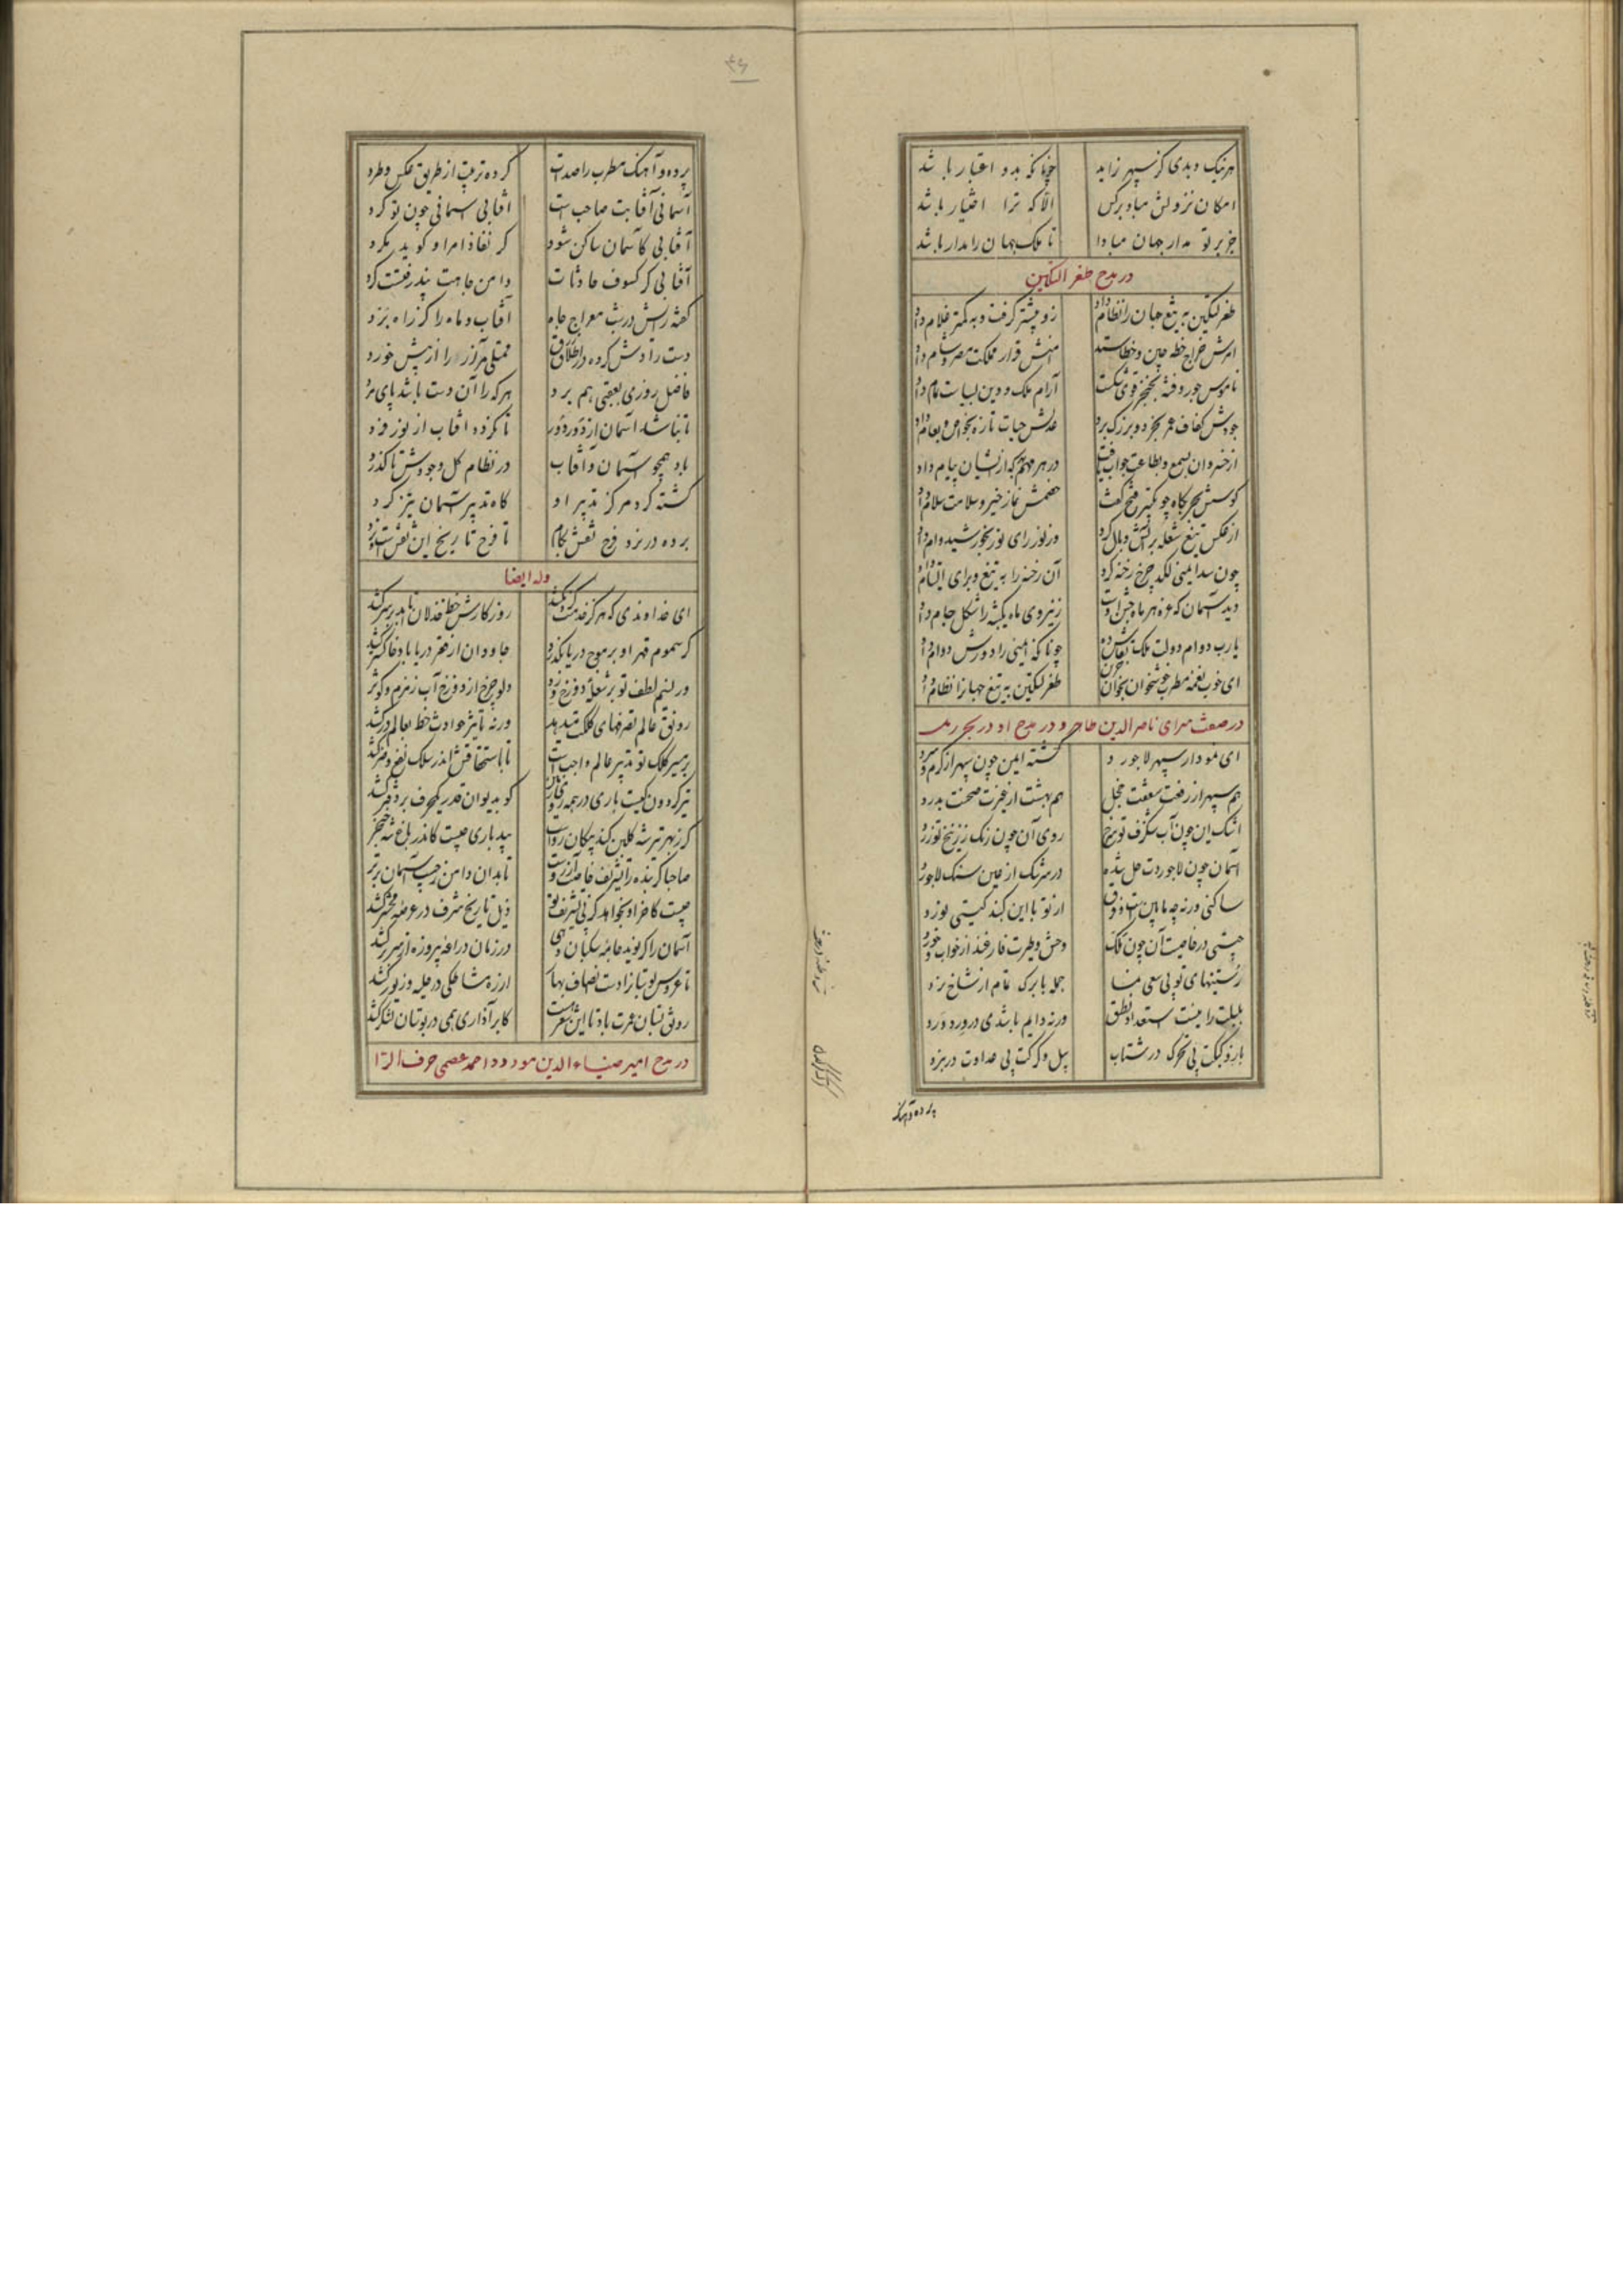 هر نیک و بدی کز سپهر زاید چونانکه بدو اعتبار باشد
امکان نزولش مباد بر کس الا که ترا اختیار باشد
جز بر تو مدار جهان مبادا تا ملک جهان را مدار باشد
در مدح طغرالتکین
طغرلتکین به تیغ جهان را نظام داد زو بیشتر گرفت و به کمتر غلام داد
امرش خراج خطه چین و خطا ستد منهش قرار مملکت مصر و شام داد
ناموس جور و فتنه بخنجر قوی شکست آرام ملک و دین بسیاست تمام داد
جودش کفاف عمر بخرد و بزرگ برد عدلش حیات تازه بخواص و بعام داد
از خسروان بسمع و بطاعت جواب یافت در هر مهم که از ایشان پیام داد
کوسش بحربگاه چو تکبیر فتح گفت خصمش نماز خیر و سلامت سلام داد
از عکس تیغ شعله بر آتش وبال کرد وز نور رای نور بخورشید وام داد
چون سد ایمنی لگد چرخ رخنه کرد آن رخنه را به تیغ و برای التیام داد
دید آسمان که غره هر ماه جشن اوست زین روی ماه یکشبه را شکل جام داد
یارب دوام دولت ملک و بقاش ده چونانکه ایمنی را دورش دوام داد
ای خوب نغمه مطرب خوشخوان بخوان طغرلتکین به تیغ جهان را نظام داد
در صفت سرای ناصر الدین طاهر و در مدح او در بحر رمل
ای نمودار سپهر لاجورد گشته ایمن چون سپهر از گرم و سرد
هم سپهر از رفعت سقفت خجل هم بهشت از غیرت صحنت بدرد
اشک این چون آب شنگرف تو سرخ روی آن چون رنگ زرنیخ تو زرد
آسمان چون لاجوردت حل شده در سرشک از عین سنگ لاجورد
ساکنی ورنه چه مابین است و فرق از تو با این گنبد گیتی نورد
جنتی در خاصیت آن چون فلک وحش و طیرت فارغند از خواب و خورد
رستنیهای تو بی سعی نما جمله با برگ تمام از شاخ نرد
بلبلت را نیست استعداد نطق ورنه دایم باشدی در ورد ورد
باز و کبکت بی تحرک در شتاب پیل و گرگت بی عداوت در نبرد
پرده و آهنگ
۴۶
پرده و آهنگ مطرب را صدات کرده ترتیب از طریق عکس و طرد
آسمانی آفتابت صاحب است آفتابی آسمانی چون تو کرد
آفتابی کاسمان ساکن شود گر نفاذ امر او گوید مگرد
آفتابی کز کسوف حادثات دامن جاهت نپذرفتست گرد
گفته رایش در شب معراج جاه آفتاب و ماه را کز راه برد
دست رادش کرده در اطلاق رزق ممتلی مر آز را از بیش خورد
فاضل روزی بعقبی هم برد هر که را آن دست باشد پای مرد
تا نباشد آسمان از دور دور تا نگردد آفتاب از نور فرد
باد همچو آسمان و آفتاب در نظام کل وجودش ناگذرد
گشته گرد مرکز تدبیر او گاه تدبیر آسمان تیز گرد
برده در نرد فرح نقش بکام تا فرح تاریخ این نقش است و نرد
وله ایضا
ای خداوندی که هر کز خدمتت گردن کشد روزگارش خط خذلان تا ابد بر سر کشد
گر سموم قهر او بر موج دریا بگذرد جاودان از قعر دریا باد خاکستر کشد
ور نسیم لطف تو بر شعله دوزخ وزد دلو چرخ از دوزخ آب زمزم و کوثر کشد
رونق عالم تصرفهای کلکت میدهد ورنه تأثیر حوادث خط بعالم درکشد
بر سر کلک تو تدبیر عالم واجب است تا باستحقاق اندر سلک نفع و ضر کشد
تیر گردون کیست باری در همه روی زمین کو بدیوان قدر یک حرف بر دفتر کشد
گر زبهر تیر شه گلبن کند پیکان رواست بید باری چیست کاندر باغ شه خنجر کشد
صاحبا گر بنده را تشریف خاصت آرزوست تا بدان دامن ز جیب آسمان برتر کشد
چیست کاخر او نخواهد کز پی تشریف تو ذیل تاریخ شرف در عرصه محشر کشد
آسمان را گر بگوید جامه سکبان تو در زمان دراعه پیروزه از سر بر کشد
تا عروس نوبهار از دست انصاف بهار از ره مشاطگی در حله و زیور کشد
رونق بستان عمرت باد تا این شعر هست کابر آذاری همی در بوستان لشکر کشد
در مدح امیر ضیاء الدین مودود احمد عصمی حرف الرا